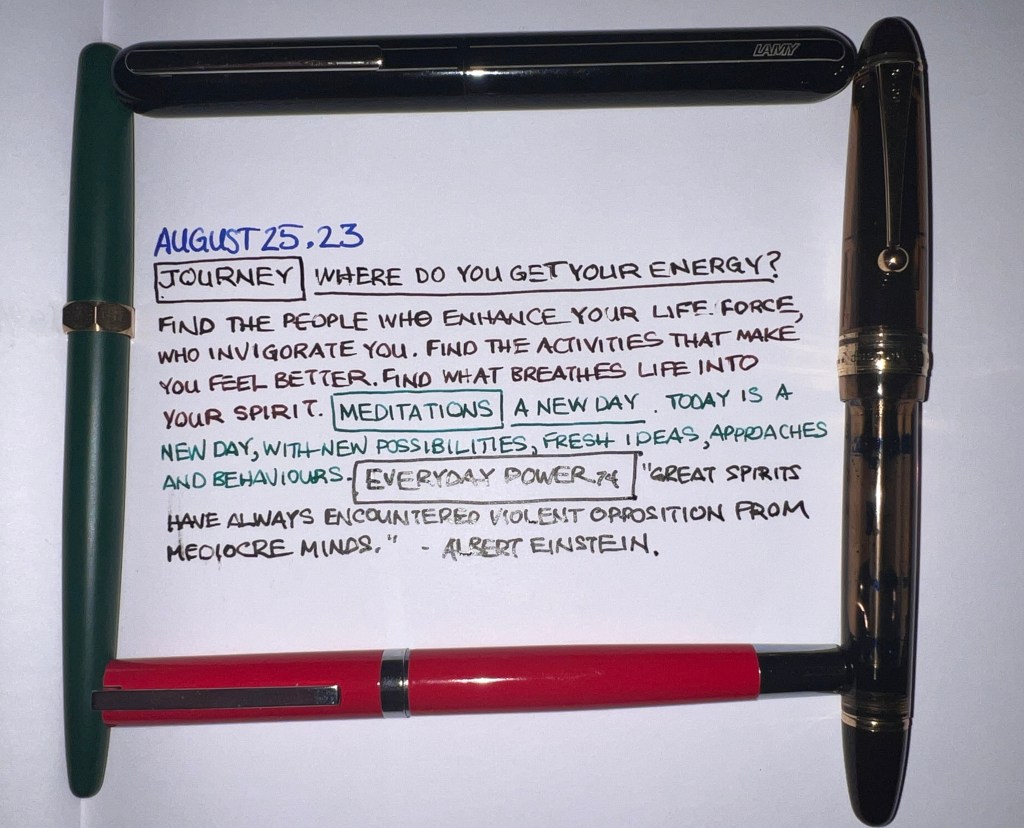 LAMY
AUGUST 25.23
JOURNEY WHERE DO YOU GET YOUR ENERGY?
FIND THE PEOPLE WHO ENHANCE YOUR LIFE FORCE,
WHO INVIGORATE YOU. FIND THE ACTIVITIES THAT MAKE
YOU FEEL BETTER. FIND WHAT BREATHES LIFE INTO
YOUR SPIRIT. MEDITATIONS A NEW DAY. TODAY IS A
NEW DAY, WITH NEW POSSIBILITIES, FRESH IDEAS, APPROACHES
AND BEHAVIOURS. EVERYDAY POWER "GREAT SPIRITS
HAVE ALWAYS ENCOUNTERED VIOLENT OPPOSITION FROM
MEDIOCRE MINDS." - ALBERT EINSTEIN.